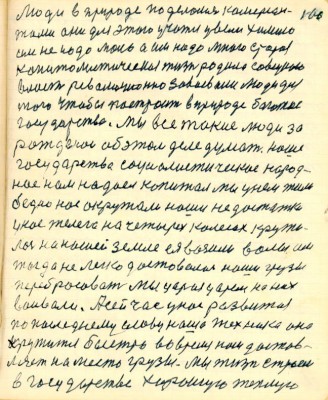 Люди в природе поделались камерен-
тами они для этого учатся
им не надо мало а им надо много старая
капиталистическая жизнь родила советскую
власть революционно завоевали люди для
того чтобы построить в природе богатое
государство. Мы все такие люди за
рождение об этом деле думать. наше
государства социалистическое народ-
ное нам надоел капитал мы у него жили
бедно нас окружали наши недостатки
у нас телега на четырех колесах крути-
лась на нашей земле возили волы им
тогда не легко доставалось наши грузы
перебросовать мы царя царем на них
воевали. А сейчас у нас развитая
по последнему слову наша техника она
крутится быстро вовремя нам достов-
ляет на место грузы. Мы жизнь строим
в государстве хорошую теплую